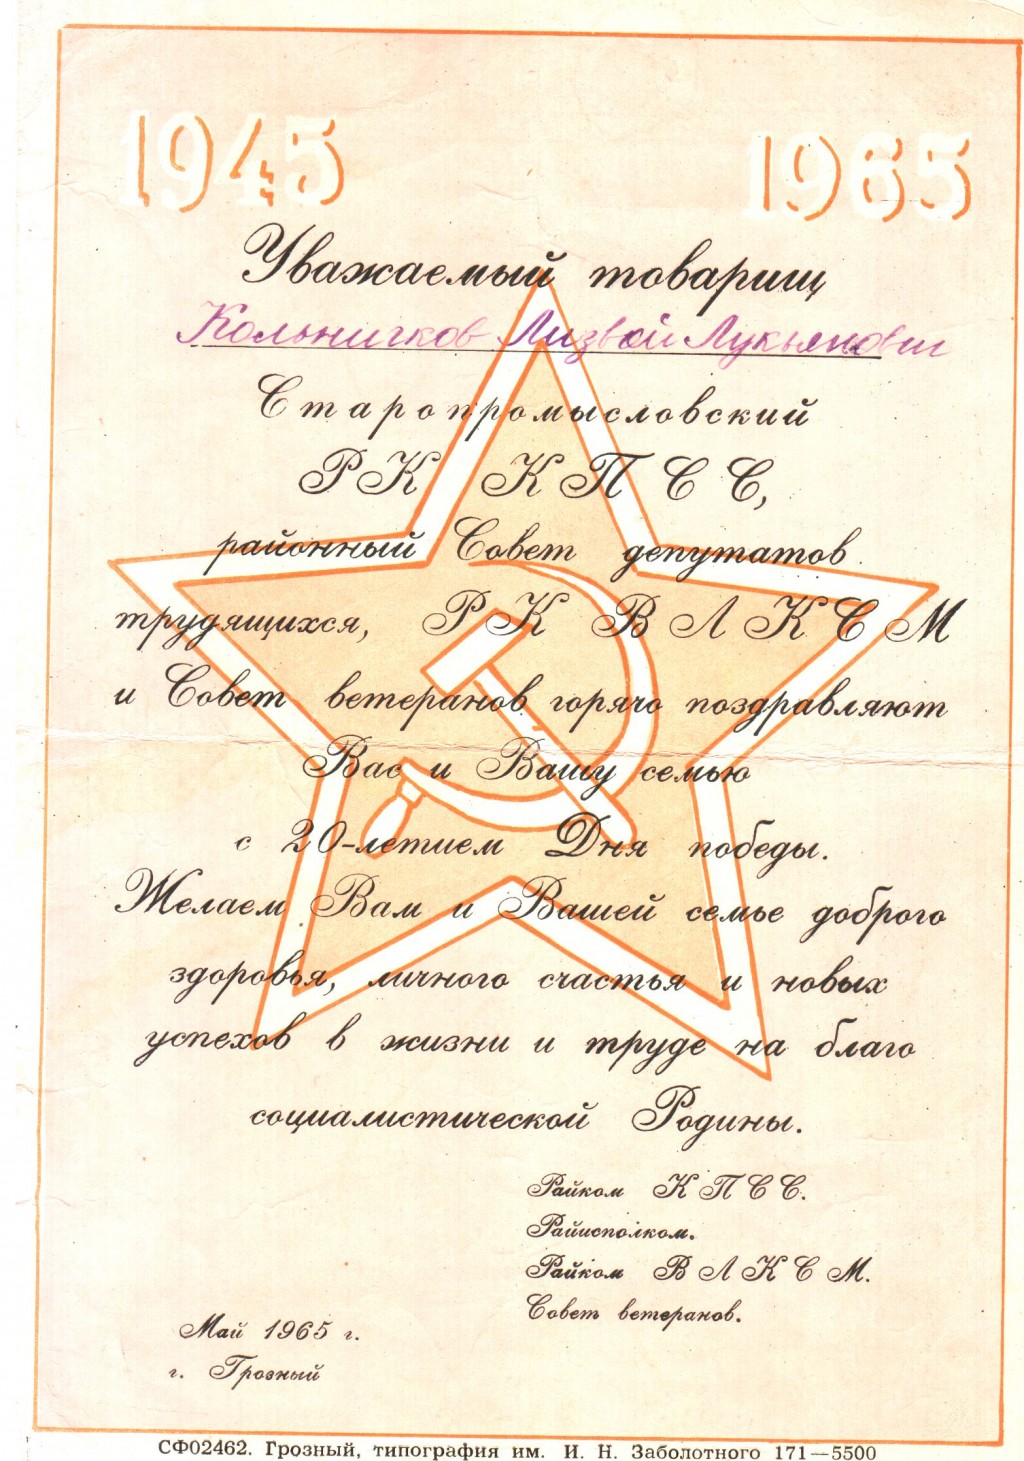 1945 1965
Уважаемый товарищ
Кольничков Лизвой Лукьянович
Старопромысловский
РК КПСС,
районный Совет депутатов
трудящихся, РК ВЛКСМ
и Совет ветеранов горячо поздравляют
Вас и Вашу семью
с 20-летием Дня победы.
Желаем Вам и Вашей семье доброго
здоровья, личного счастья и новых
успехов в жизни и труде на благо
социалистической Родины.
Райком КПСС.
Райисполком.
Райком ВЛКСМ.
Совет ветеранов.
Май 1965 г.
г. Грозный
СФ02462. Грозный, типография им. И. Н. Заболотного 171—5500